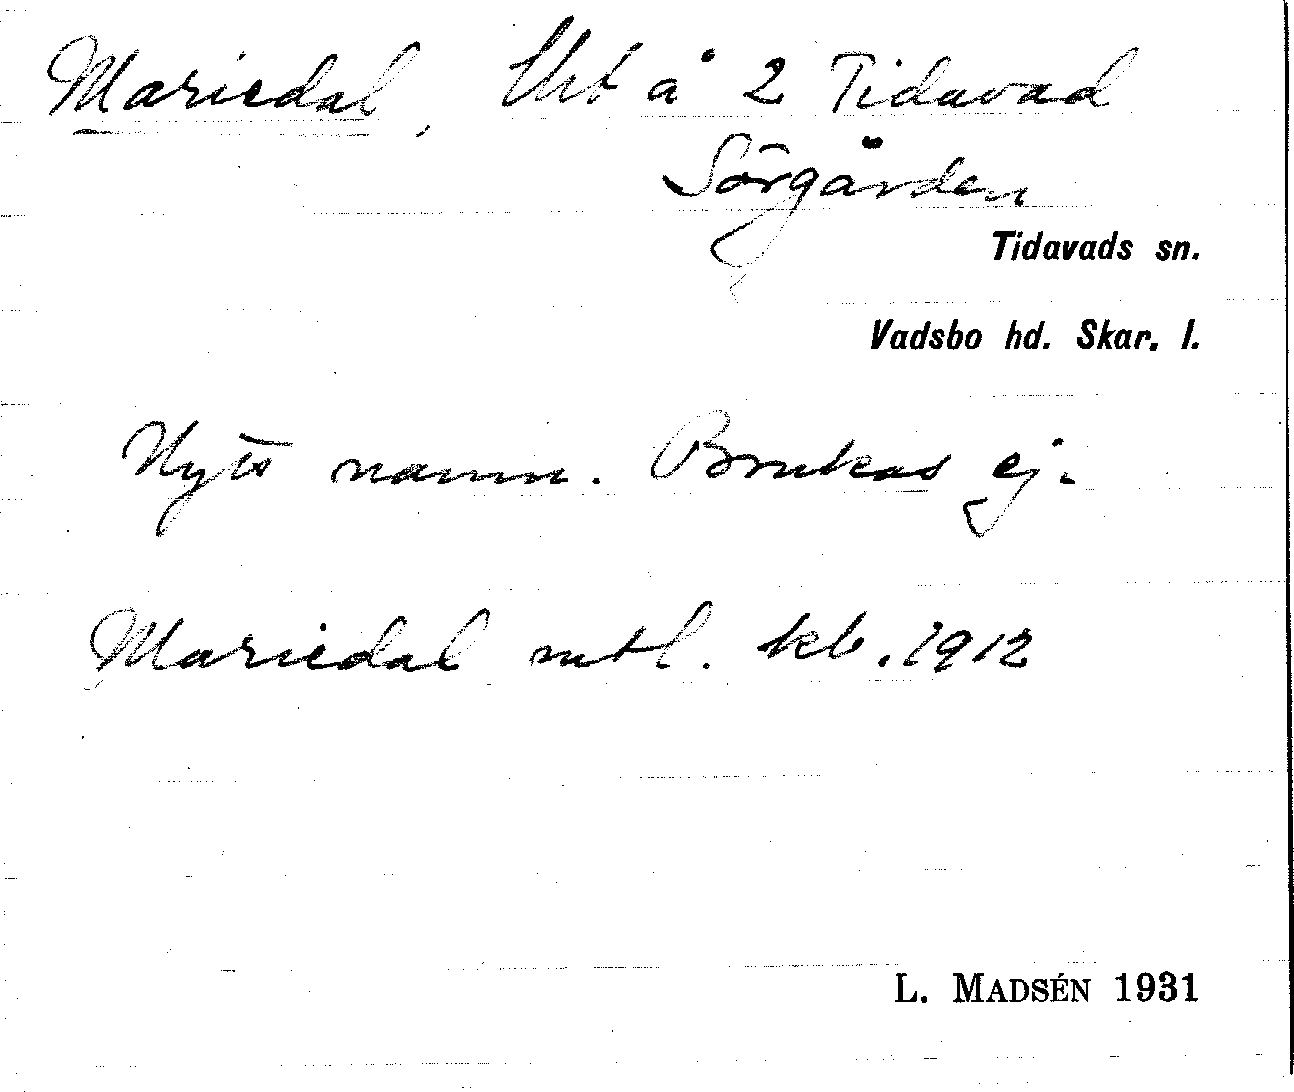 Mariedal, Uht å 2 Tidavad
Sörgården
Tidavads sn.
Vadsbo hd. Skar. l.
Nytt namn. Brukas ej.
Mariedal mtl. kb. 1912
L. MADSÉN 1931